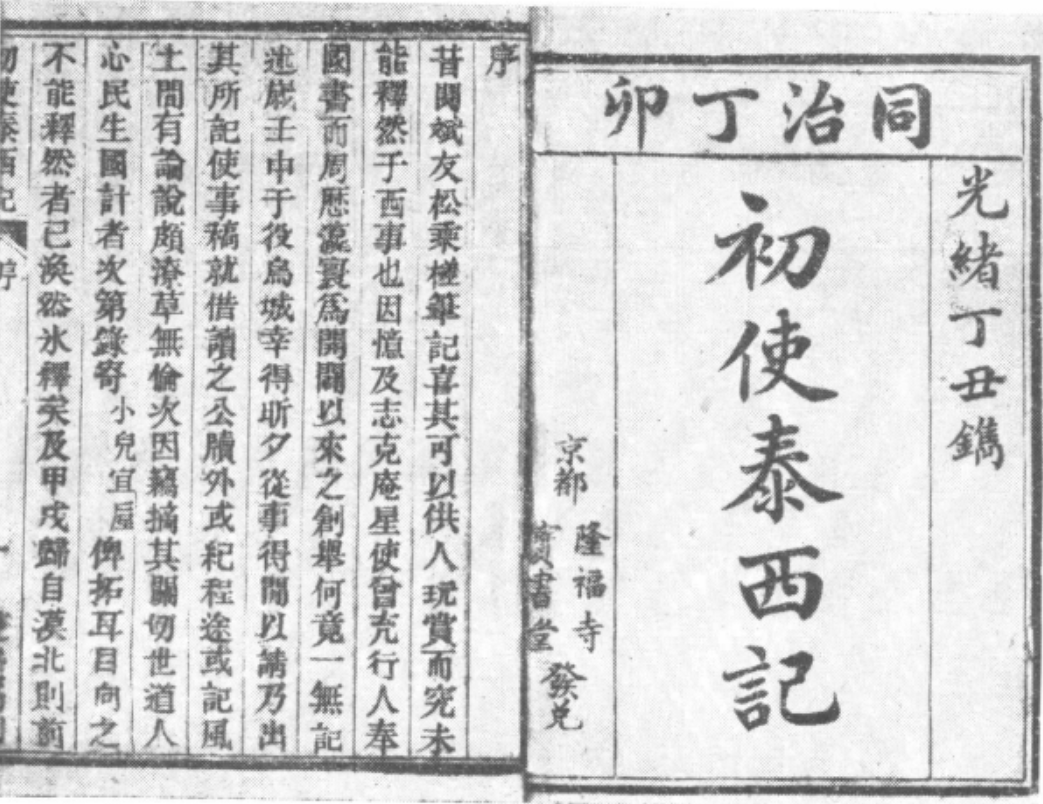 同治丁卯
光緒丁丑鐫
初使泰西記
京都
隆福寺
書堂
發兌
序
昔閱斌友松乘槎筆記喜其可以供人玩賞而究未
能釋然于西事也因憶及志克庵星使曾充行人奉
國書而周歷瀛寰爲開闢以來之創舉何竟一無記
述歲壬申于役烏城幸得昕夕從事得閒以請乃出
其所記使事稿就借讀之公牘外或紀程途或記風
土間有論說頗潦草無倫次因竊摘其關切世道人
心民生國計者次第錄寄小兒宜垕俾拓耳目向之
不能釋然者已渙然氷釋矣及甲戌歸自漠北則前
初使泰西記 序